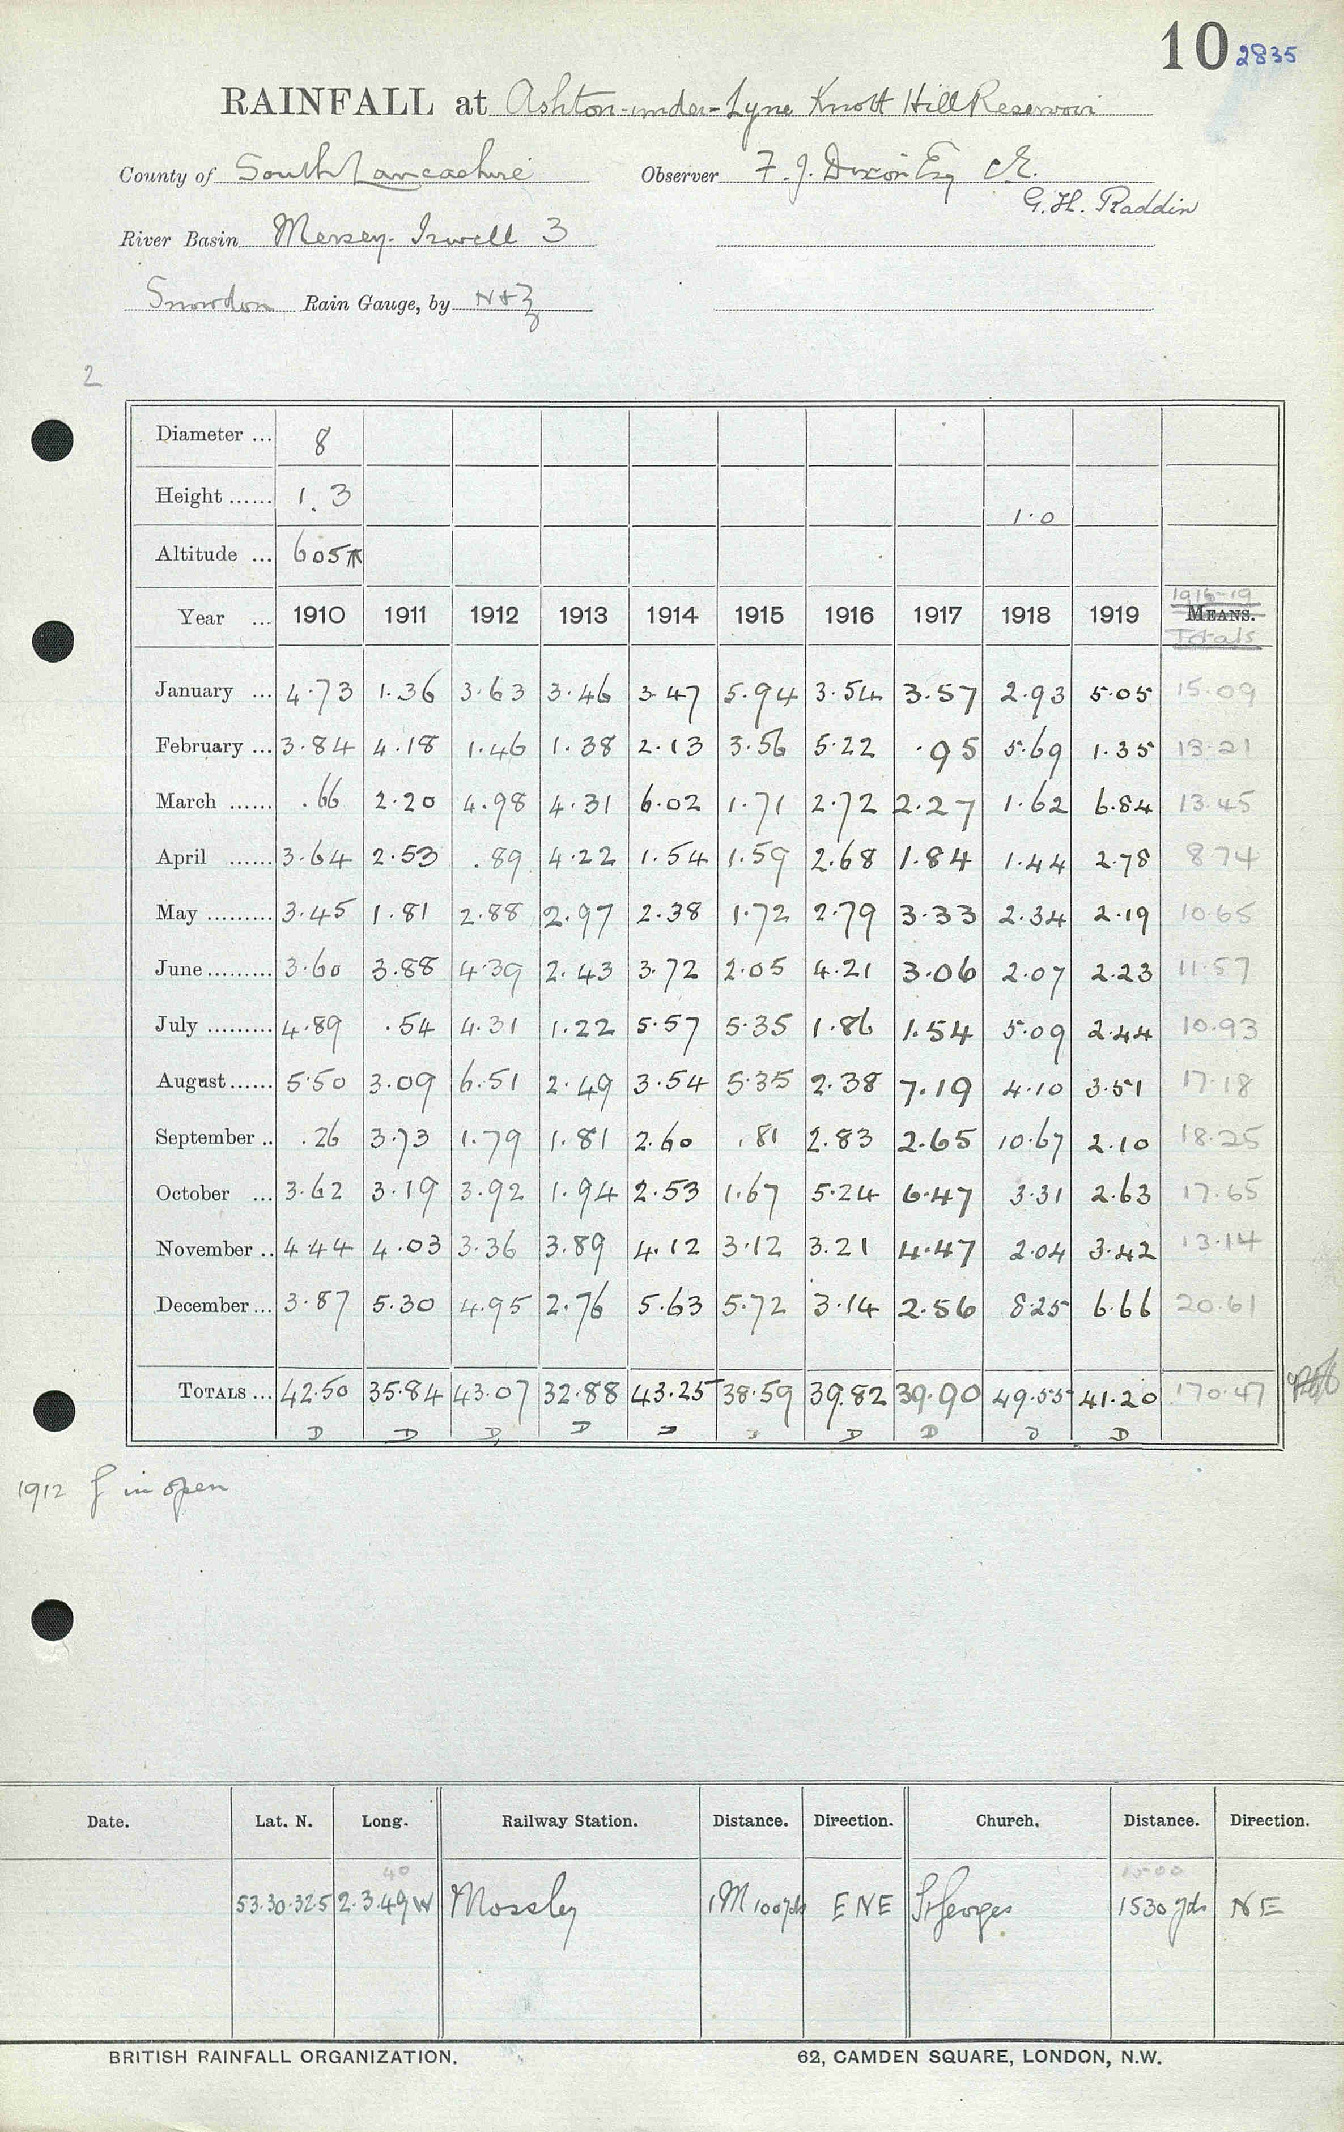 10 2835
RAINFALL at Ashton-under-Lyne Knott Hill Reservoir
County of South Lancashire Observer F. J. Dixon Esq C.E.
G. H. Raddin
River Basin Mersey. Irwell 3
Snowdon Rain Gauge, by N & Z
2
Diameter ... 8
Height ...... 1.3 1.0
Altitude ... 605
1916-19
Year ... 1910 1911 1912 1913 1914 1915 1916 1917 1918 1919 MEANS.
Totals
January ... 4.73 1.36 3.63 3.46 3.47 5.94 3.54 3.57 2.93 5.05 15.09
February ... 3.84 4.18 1.46 1.38 2.13 3.56 5.22 .95 5.69 1.35 13.21
March ...... .66 2.20 4.98 4.31 6.02 1.71 2.72 2.27 1.62 6.84 13.45
April ...... 3.64 2.53 .89 4.22 1.54 1.59 2.68 1.84 1.44 2.78 8.74
May ......... 3.45 1.81 2.88 2.97 2.38 1.72 2.79 3.33 2.34 2.19 10.65
June ......... 3.60 3.88 4.39 2.43 3.72 2.05 4.21 3.06 2.07 2.23 11.57
July ......... 4.89 .54 4.31 1.22 5.57 5.35 1.86 1.54 5.09 2.44 10.93
August ...... 5.50 3.09 6.51 2.49 3.54 5.35 2.38 7.19 4.10 3.51 17.18
September .. .26 3.73 1.79 1.81 2.60 .81 2.83 2.65 10.67 2.10 18.25
October ... 3.62 3.19 3.92 1.94 2.53 1.67 5.24 6.47 3.31 2.63 17.65
November .. 4.44 4.03 3.36 3.89 4.12 3.12 3.21 4.47 2.04 3.42 13.14
December ... 3.87 5.30 4.95 2.76 5.63 5.72 3.14 2.56 8.25 6.66 20.61
TOTALS ... 42.50 35.84 43.07 32.88 43.25 38.59 39.82 39.90 49.55 41.20 170.47
D D D D D D D D D D
1912 in open
Date. Lat. N. Long. Railway Station. Distance. Direction. Church. Distance. Direction.
40 1500
53.30.32.5 2.3.49 W Mossley 1M 100 yds E N E St Georges 1530 yds N E
BRITISH RAINFALL ORGANIZATION. 62, CAMDEN SQUARE, LONDON, N.W.